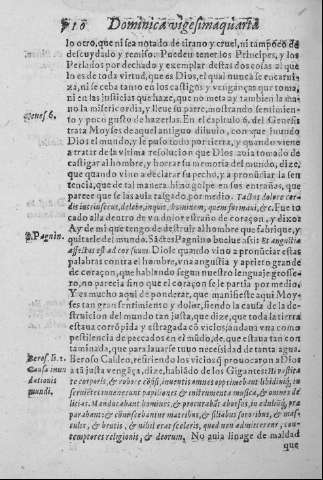 Dominica vigesimaquarta
lo otro, que ni sea notado de tirano y cruel, ni tampoco de
descuydado y remiso. Pueden tener los Principes, y los
Perlados por dechado y exemplar destas dos cosas al que
lo es de toda virtud, que es Dios, el qual nunca se
za, ni se ceba tanto en los castigos y venganças que toma,
ni en las justicias que haze, que no meta ay tambien la ma
no la misericordia, y lleue su parte, mostrando sentimien-
to y poco gusto de hazerlas. En el capitulo 6. del Genesis
Genes 6.
trata Moyses de aquel antiguo diluuio, con que hundo
Dios el mundo, y le puso todo por tierra, y quando viene
a tratar de la vltima resolucion que Dios auia tomado de
castigar al hombre, y borrar su memoria del mundo, dize,
que quando vino a declarar su pecho, y a pronunciar la sen
tencia, que de tal manera hizo golpe en sus entrañas, que
parece que se las auia rasgado por medio. Tactus dolore cor-
dis intrinsecus, delebo, inquit, hominem, quem formaui, &c. Fue to
cado alla dentro de vn dolor estraño de coraçon, y dixo:
Ay de mi que tengo de destruir al hombre que fabriquè, y
Pagnin.
quitarle del mundo. Sãctes Pagnino buelue assi: Et angustia
affectus est ad cor suum. Diole quando vino a pronunciar estas
palabras contra el hombre, vna angustia y aprieto grande
de coraçon, que hablando segun nuestro lenguaje grosse-
ro, no parecia sino que el coraçon se le partia por medio.
Y es mucho aqui de ponderar, que manifieste aqui Moy-
ses tan gran sentimiento y dolor, siendo la causa de la de-
struicion del mundo tan justa, que dize, que toda la tierra
estaua corrõpida y estragada cõ vicios, andaua vna como
pestilencia de peccados en el mũdo, de que estaua tan con
taminada, que para lauarse tuuo necessidad de tanta agua.
Beros. li. 1.
Causa inun
dationis
mundi.
Beroso Caldeo, refiriendo los vicios q̃ prouocaron a Dios
a tã justa vengãça, dize, hablãdo de los Gigantes: Hi
corporis, & robore
inuenerunt papiliones & instrumenta musica, & omnes de
licias. Manducabant homines, & procurabãt aborsus,
parabant: & commiscebantur matribus, & filiabus sororibus, & mas-
culis, & brutis, & nihil erat sceleris, quod non admitterent, con-
temptores religionis, & deorum. No auia linage de maldad
que